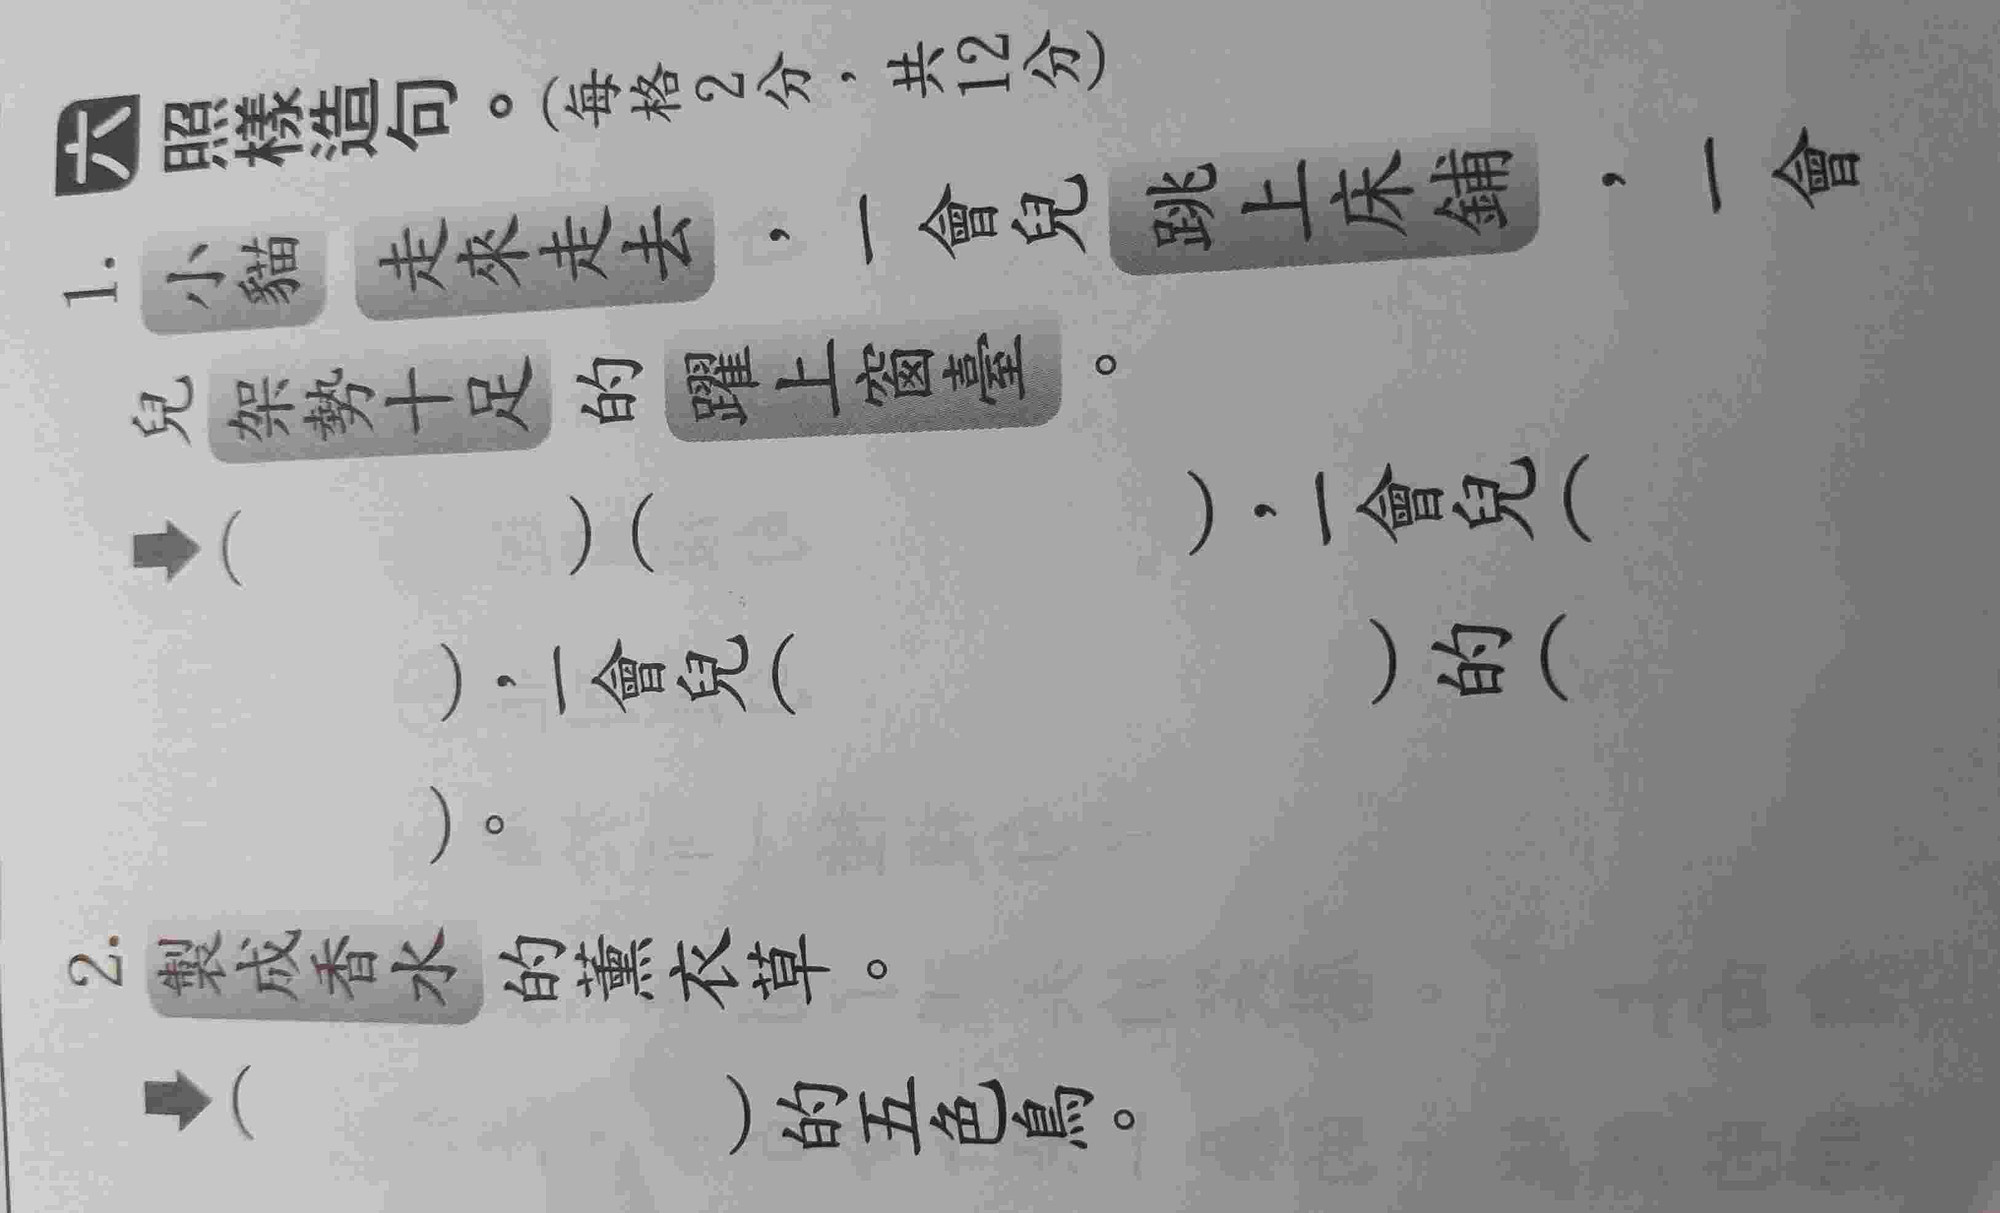 六 照樣造句。(每格2分,共12分)
1. 小貓 走來走去,一會兒 跳上床鋪,一會
兒 架勢十足 的 躍上窗臺。
➡( )( ),一會兒(
),一會兒( )的(
)。
2. 製成香水 的薰衣草。
➡( )的五色鳥。